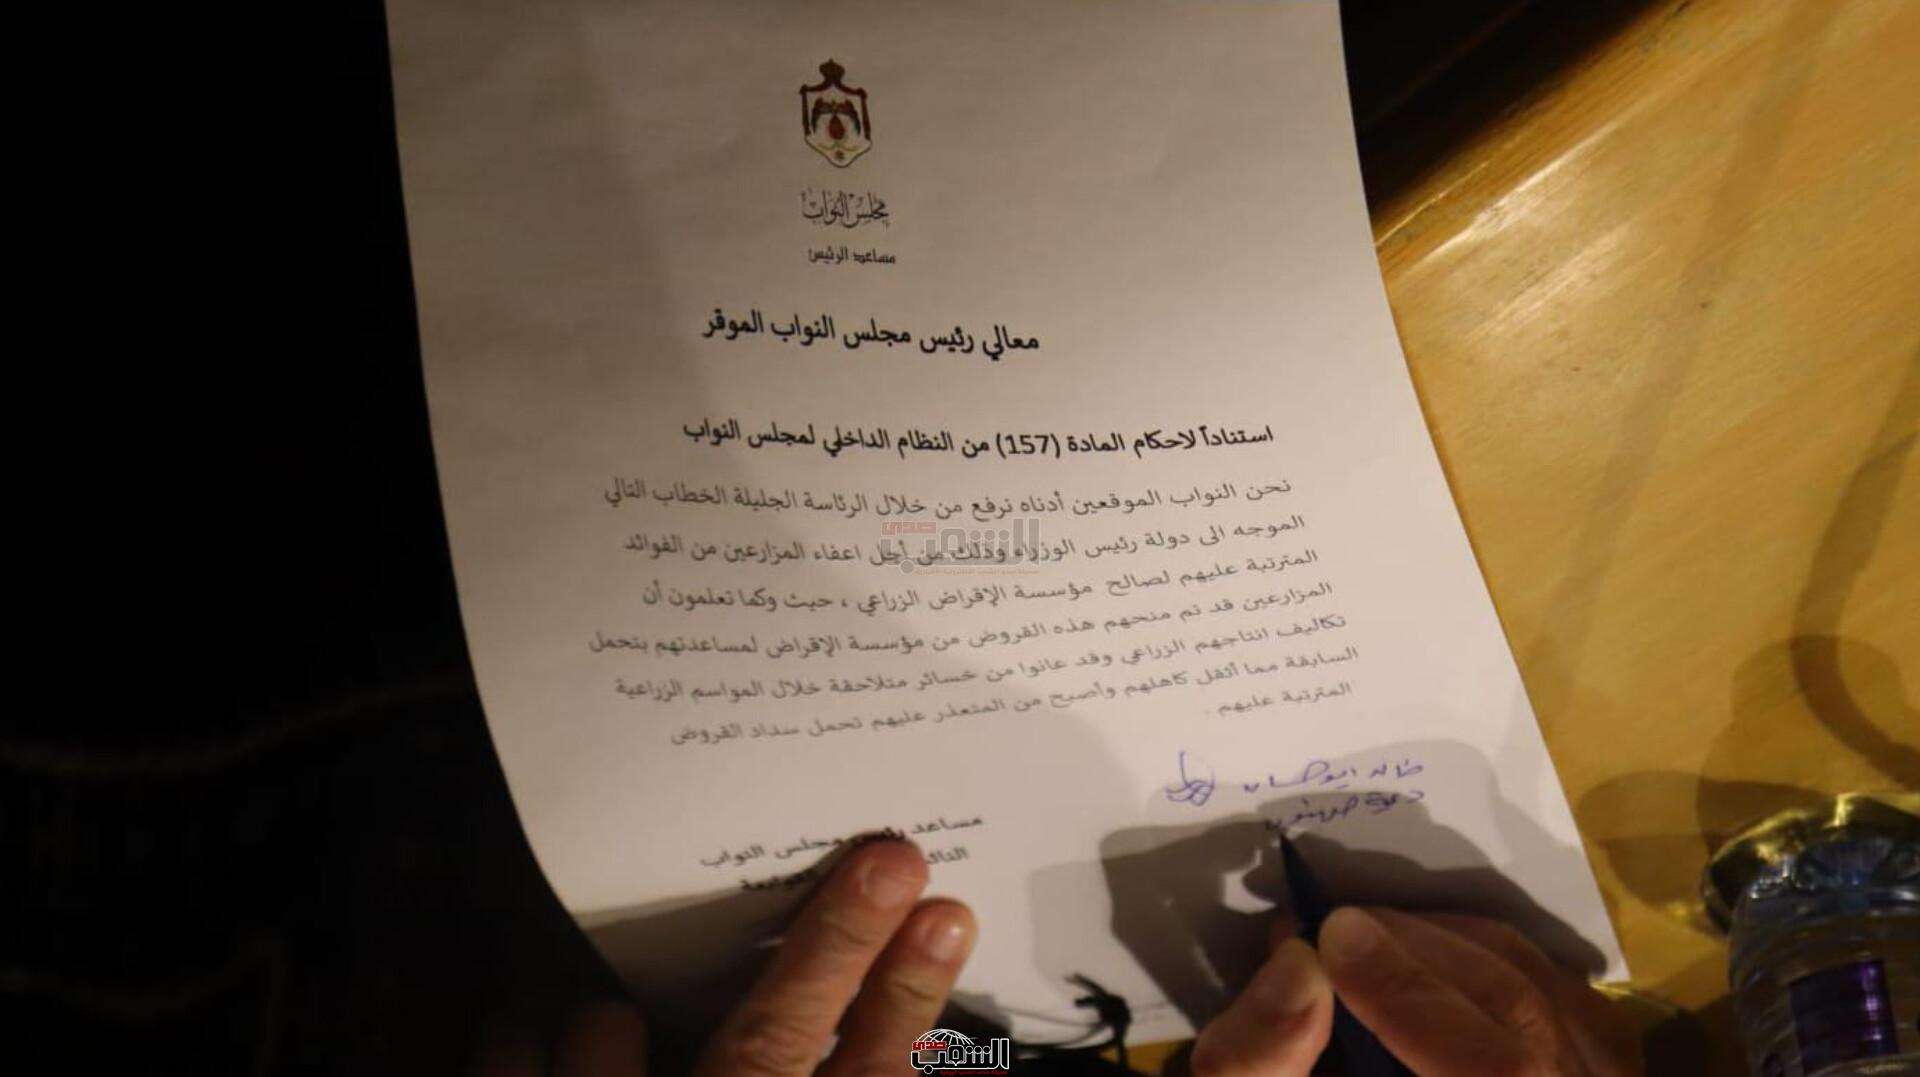 مجلس النواب
مساعد الرئيس
معالي رئيس مجلس النواب الموقر
استناداً لاحكام المادة (157) من النظام الداخلي لمجلس النواب
نحن النواب الموقعين أدناه نرفع من خلال الرئاسة الجليلة الخطاب التالي
الموجه الى دولة رئيس الوزراء وذلك من أجل اعفاء المزارعين من الفوائد
المترتبة عليهم لصالح مؤسسة الإقراض الزراعي ، حيث وكما تعلمون أن
المزارعين قد تم منحهم هذه القروض من مؤسسة الإقراض لمساعدتهم بتحمل
تكاليف انتاجهم الزراعي وقد عانوا من خسائر متلاحقة خلال المواسم الزراعية
السابقة مما أثقل كاهلهم وأصبح من المتعذر عليهم تحمل سداد القروض
المترتبة عليهم .
خالد ابو حسان
مساعد رئيس مجلس النواب
صدى الشعب
صدى الشعب